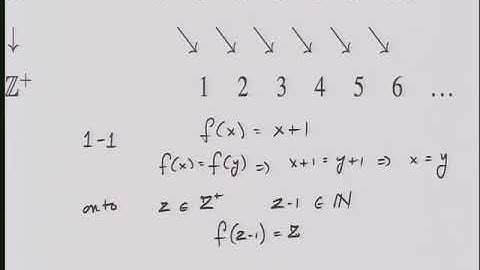 ↓ ↘ ↘ ↘ ↘ ↘ ↘
ℤ⁺ 1 2 3 4 5 6 ...
1-1 f(x) = x+1
f(x) = f(y) ⇒ x+1 = y+1 ⇒ x = y
onto z ∈ ℤ⁺ z-1 ∈ ℕ
f(z-1) = z